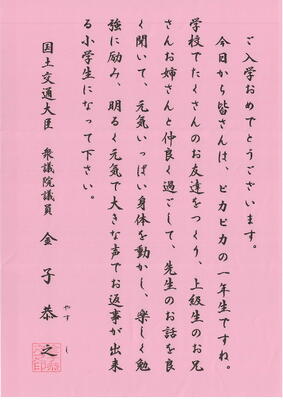 ご入学おめでとうございます。
今日から皆さんは、ピカピカの一年生ですね。
学校でたくさんのお友達をつくり、上級生のお兄
さんお姉さんと仲良く過ごして、先生のお話を良
く聞いて、元気いっぱい身体を動かし、楽しく勉
強に励み、明るく元気で大きな声でお返事が出来
る小学生になって下さい。
国土交通大臣 衆議院議員 金子恭之
やすし